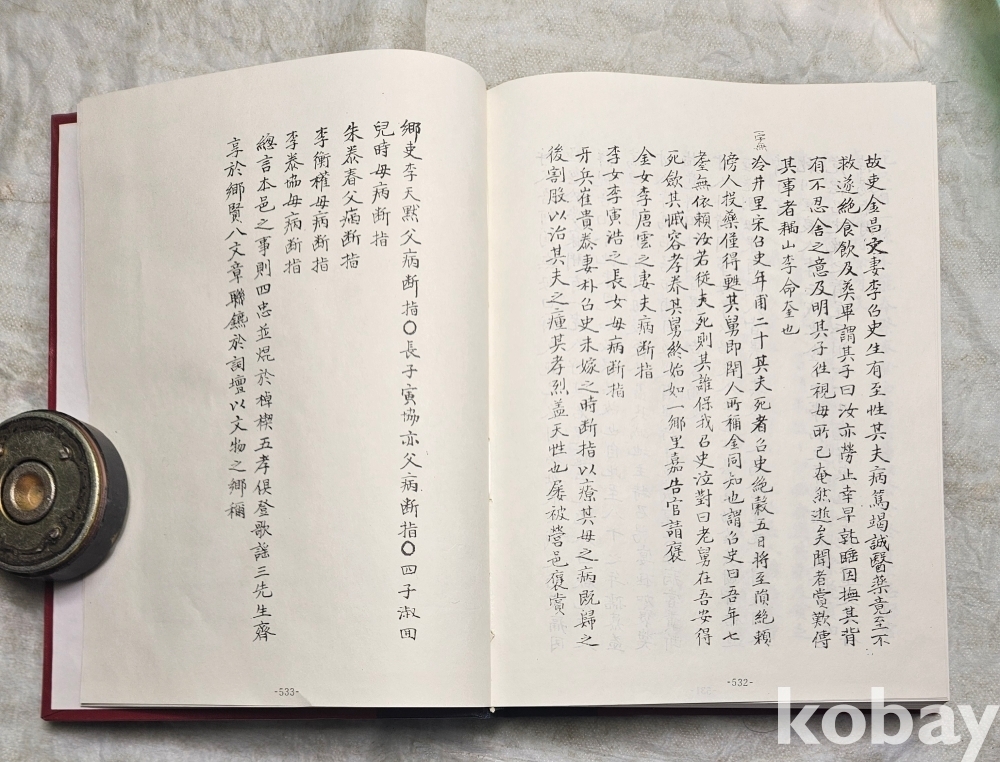 故吏金昌文妻李召史生有至性其夫病篤竭誠醫藥竟至不
救遂絶食飮及葬畢謂其子曰汝亦勞止幸早就睡因撫其背
有不忍舍之意及明其子往視母所已奄然逝矣聞者賞歎傳
其事者耦山李命奎也
冷井里宋召史年甫二十其夫死者召史絶穀五日將至隕絶賴
傍人投藥僅得甦其舅即閑人所稱金同知也謂召史曰吾年七
耋無依賴汝若從夫死則其誰保我召史泣對曰老舅在吾安得
死斂其慽容孝養其舅終始如一鄉里嘉告官請褒
金女李唐雲之妻夫病断指
李女李寅浩之長女母病断指
牙兵崔貴泰妻朴召史未嫁之時断指以療其母之病既歸之
後割股以治其夫之瘇其孝烈盖天性也屢被營邑褒賞
-532-
鄉吏李天默父病断指〇長子寅協亦父病断指〇四子淑回
兒時母病断指
朱泰春父病断指
李衡權母病断指
李泰協母病断指
總言本邑之事則四忠並焜於棹楔五孝俱登歌謠三先生齊
享於鄉賢八文章聯鑣於詞壇以文物之鄉稱
-533-
kobay